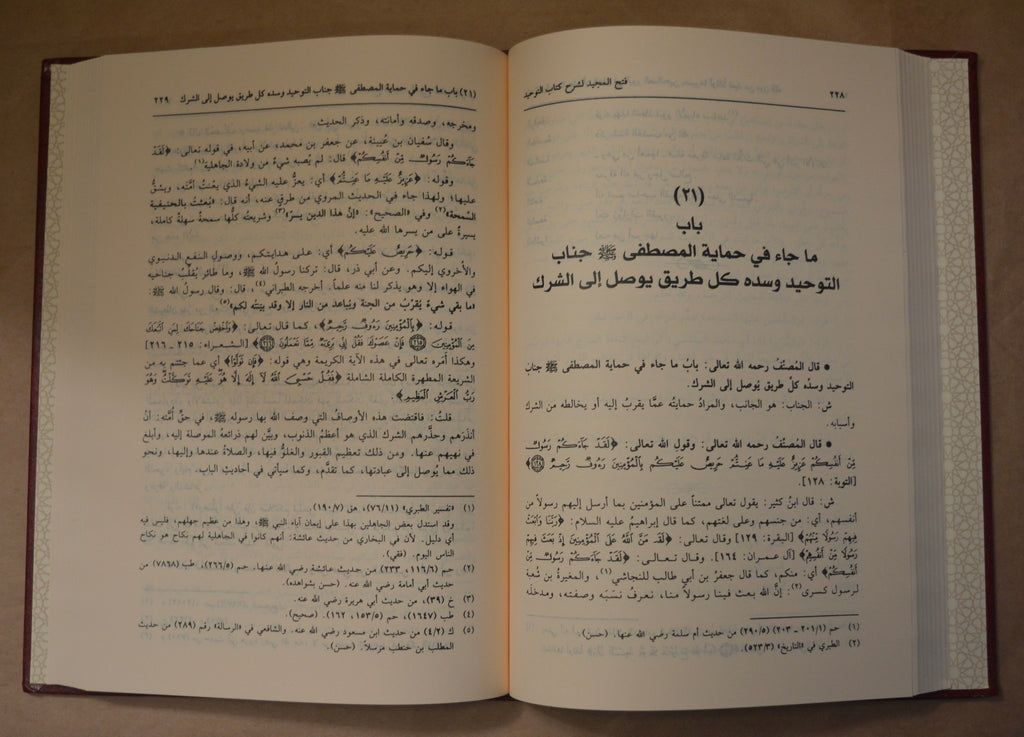 ٢٢٨
فتح المجيد لشرح كتاب التوحيد
(٢١)
باب
ما جاء في حماية المصطفى ﷺ جناب
التوحيد وسده كل طريق يوصل إلى الشرك
● قال المُصنِّفُ رحمه الله تعالى: بابُ ما جاء في حماية المصطفى ﷺ جنابَ
التوحيد وسدِّه كلَّ طريق يُوصل إلى الشرك.
ش: الجناب: هو الجانب، والمرادُ حمايتُه عمَّا يقربُ إليه أو يخالطه من الشرك
وأسبابه.
● قال المُصنِّفُ رحمه الله تعالى: وقولِ الله تعالى: ﴿لَقَدْ جَاءَكُمْ رَسُولٌ
مِّنْ أَنفُسِكُمْ عَزِيزٌ عَلَيْهِ مَا عَنِتُّمْ حَرِيصٌ عَلَيْكُم بِالْمُؤْمِنِينَ رَءُوفٌ رَّحِيمٌ ﴿١٢٨﴾﴾
[التوبة: ١٢٨].
ش: قال ابنُ كثير: يقول تعالى ممتناً على المؤمنين بما أرسل إليهم رسولاً من
أنفسهم، أي: من جنسهم وعلى لغتهم، كما قال إبراهيمُ عليه السلام: ﴿رَبَّنَا وَابْعَثْ
فِيهِمْ رَسُولًا مِّنْهُمْ﴾ [البقرة: ١٢٩] وقال تعالى: ﴿لَقَدْ مَنَّ اللَّهُ عَلَى الْمُؤْمِنِينَ إِذْ بَعَثَ فِيهِمْ
رَسُولًا مِّنْ أَنفُسِهِمْ﴾ [آل عمران: ١٦٤]. وقال تعالى: ﴿لَقَدْ جَاءَكُمْ رَسُولٌ مِّنْ
أَنفُسِكُمْ﴾ أي: منكم، كما قال جعفرُ بن أبي طالب للنجاشي(١)، والمغيرةُ بن شُعبة
لرسول كسرى(٢): إنَّ الله بعث فينا رسولاً منا، نعرفُ نسَبَه وصفته، ومدخلَه
(١) حم (٢٠١/١ ـ ٢٠٣) (٢٩٠/٥) من حديث أم سلمة رضي الله عنها. (حسن).
(٢) الطبري في «التاريخ» (٥٢٣/٣).
(٢١) باب ما جاء في حماية المصطفى ﷺ جناب التوحيد وسده كل طريق يوصل إلى الشرك
٢٢٩
ومخرجه، وصدقه وأمانته، وذكر الحديث.
وقال سُفيان بن عُيينة، عن جعفر بن محمد، عن أبيه، في قوله تعالى: ﴿لَقَدْ
جَاءَكُمْ رَسُولٌ مِّنْ أَنفُسِكُمْ﴾ قال: لم يُصبه شيءٌ من ولادة الجاهلية(١).
وقوله: ﴿عَزِيزٌ عَلَيْهِ مَا عَنِتُّمْ﴾ أي: يعزُّ عليه الشيءُ الذي يعْنتُ أمَّته، ويشقُّ
عليها؛ ولهذا جاء في الحديث المروي من طرقٍ عنه، أنه قال: «بُعثتُ بالحنيفية
السَّمحة»(٢) وفي «الصحيح»: «إنَّ هذا الدين يسرٌ»(٣) وشريعتُه كلُّها سمحةٌ سهلةٌ كاملة،
يسيرةٌ على من يسرها الله عليه.
قوله: ﴿حَرِيصٌ عَلَيْكُم﴾ أي: على هدايتكم، ووصولِ النفع الدنيوي
والأخروي إليكم. وعن أبي ذر، قال: تركنا رسولُ الله ﷺ، وما طائر يُقلِّبُ جناحيه
في الهواء إلا وهو يذكر لنا منه علماً. أخرجه الطبراني(٤)، قال: وقال رسولُ الله ﷺ:
«ما بقي شيءٌ يُقرِّبُ من الجنة ويُباعد من النار إلا وقد بينْتُه لكم»(٥)
قوله: ﴿بِالْمُؤْمِنِينَ رَءُوفٌ رَّحِيمٌ﴾، كما قال تعالى: ﴿وَاخْفِضْ جَنَاحَكَ لِمَنِ اتَّبَعَكَ
مِنَ الْمُؤْمِنِينَ ﴿٢١٥﴾ فَإِنْ عَصَوْكَ فَقُلْ إِنِّي بَرِيءٌ مِّمَّا تَعْمَلُونَ ﴿٢١٦﴾﴾ [الشعراء: ٢١٥ ـ ٢١٦]
وهكذا أمَره تعالى في هذه الآية الكريمة وهي قوله: ﴿فَإِن تَوَلَّوْا﴾ أي عما جئتهم به من
الشريعة المطهرة الكاملة الشاملة ﴿فَقُلْ حَسْبِيَ اللَّهُ لَا إِلَهَ إِلَّا هُوَ عَلَيْهِ تَوَكَّلْتُ وَهُوَ
رَبُّ الْعَرْشِ الْعَظِيمِ﴾.
قلتُ: فاقتضت هذه الأوصافُ التي وصف الله بها رسوله ﷺ، في حقِّ أُمَّته: أنْ
أنذَرَهم وحذَّرهم الشرك الذي هو أعظمُ الذنوب، وبيَّن لهم ذرائعَهُ الموصلة إليه، وأبلغ
في نهيهم عنها. ومن ذلك تعظيم القبور والغلوُّ فيها، والصلاةُ عندها وإليها، ونحو
ذلك مما يُوصل إلى عبادتها، كما تقدَّم، وكما سيأتي في أحاديثِ الباب.
(١) «تفسير الطبري» (٧٦/١١)، هق (١٩٠/٧).
وقد استدل بعض الجاهلين بهذا على إيمان آباء النبي ﷺ، وهذا من عظيم جهلهم، فليس فيه
أي دليل. لأن في البخاري من حديث عائشة: أنهم كانوا في الجاهلية لهم نكاح هو نكاح
الناس اليوم. (فقي).
(٢) حم (١١٦/٦، ٢٣٣) من حديث عائشة رضي الله عنها. حم (٢٦٦/٥)، طب (٧٨٦٨) من
حديث أبي أمامة رضي الله عنه. (حسن بشواهده).
(٣) خ (٣٩)، من حديث أبي هريرة رضي الله عنه.
(٤) طب (١٦٤٧)، حم (١٥٣/٥، ١٦٢). (صحيح).
(٥) ك (٤/٢) من حديث ابن مسعود رضي الله عنه. والشافعي في «الرسالة» رقم (٢٨٩) من حديث
المطلب بن حنطب مرسلاً. (حسن).